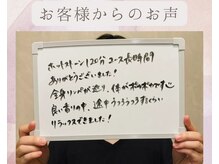 お客様からのお声
ホットストーン120分コース長時間
ありがとうございました！
全身リンパが巡り、体がポカポカです
良い香りの中、途中うつらうつらするくらい
リラックスできました！